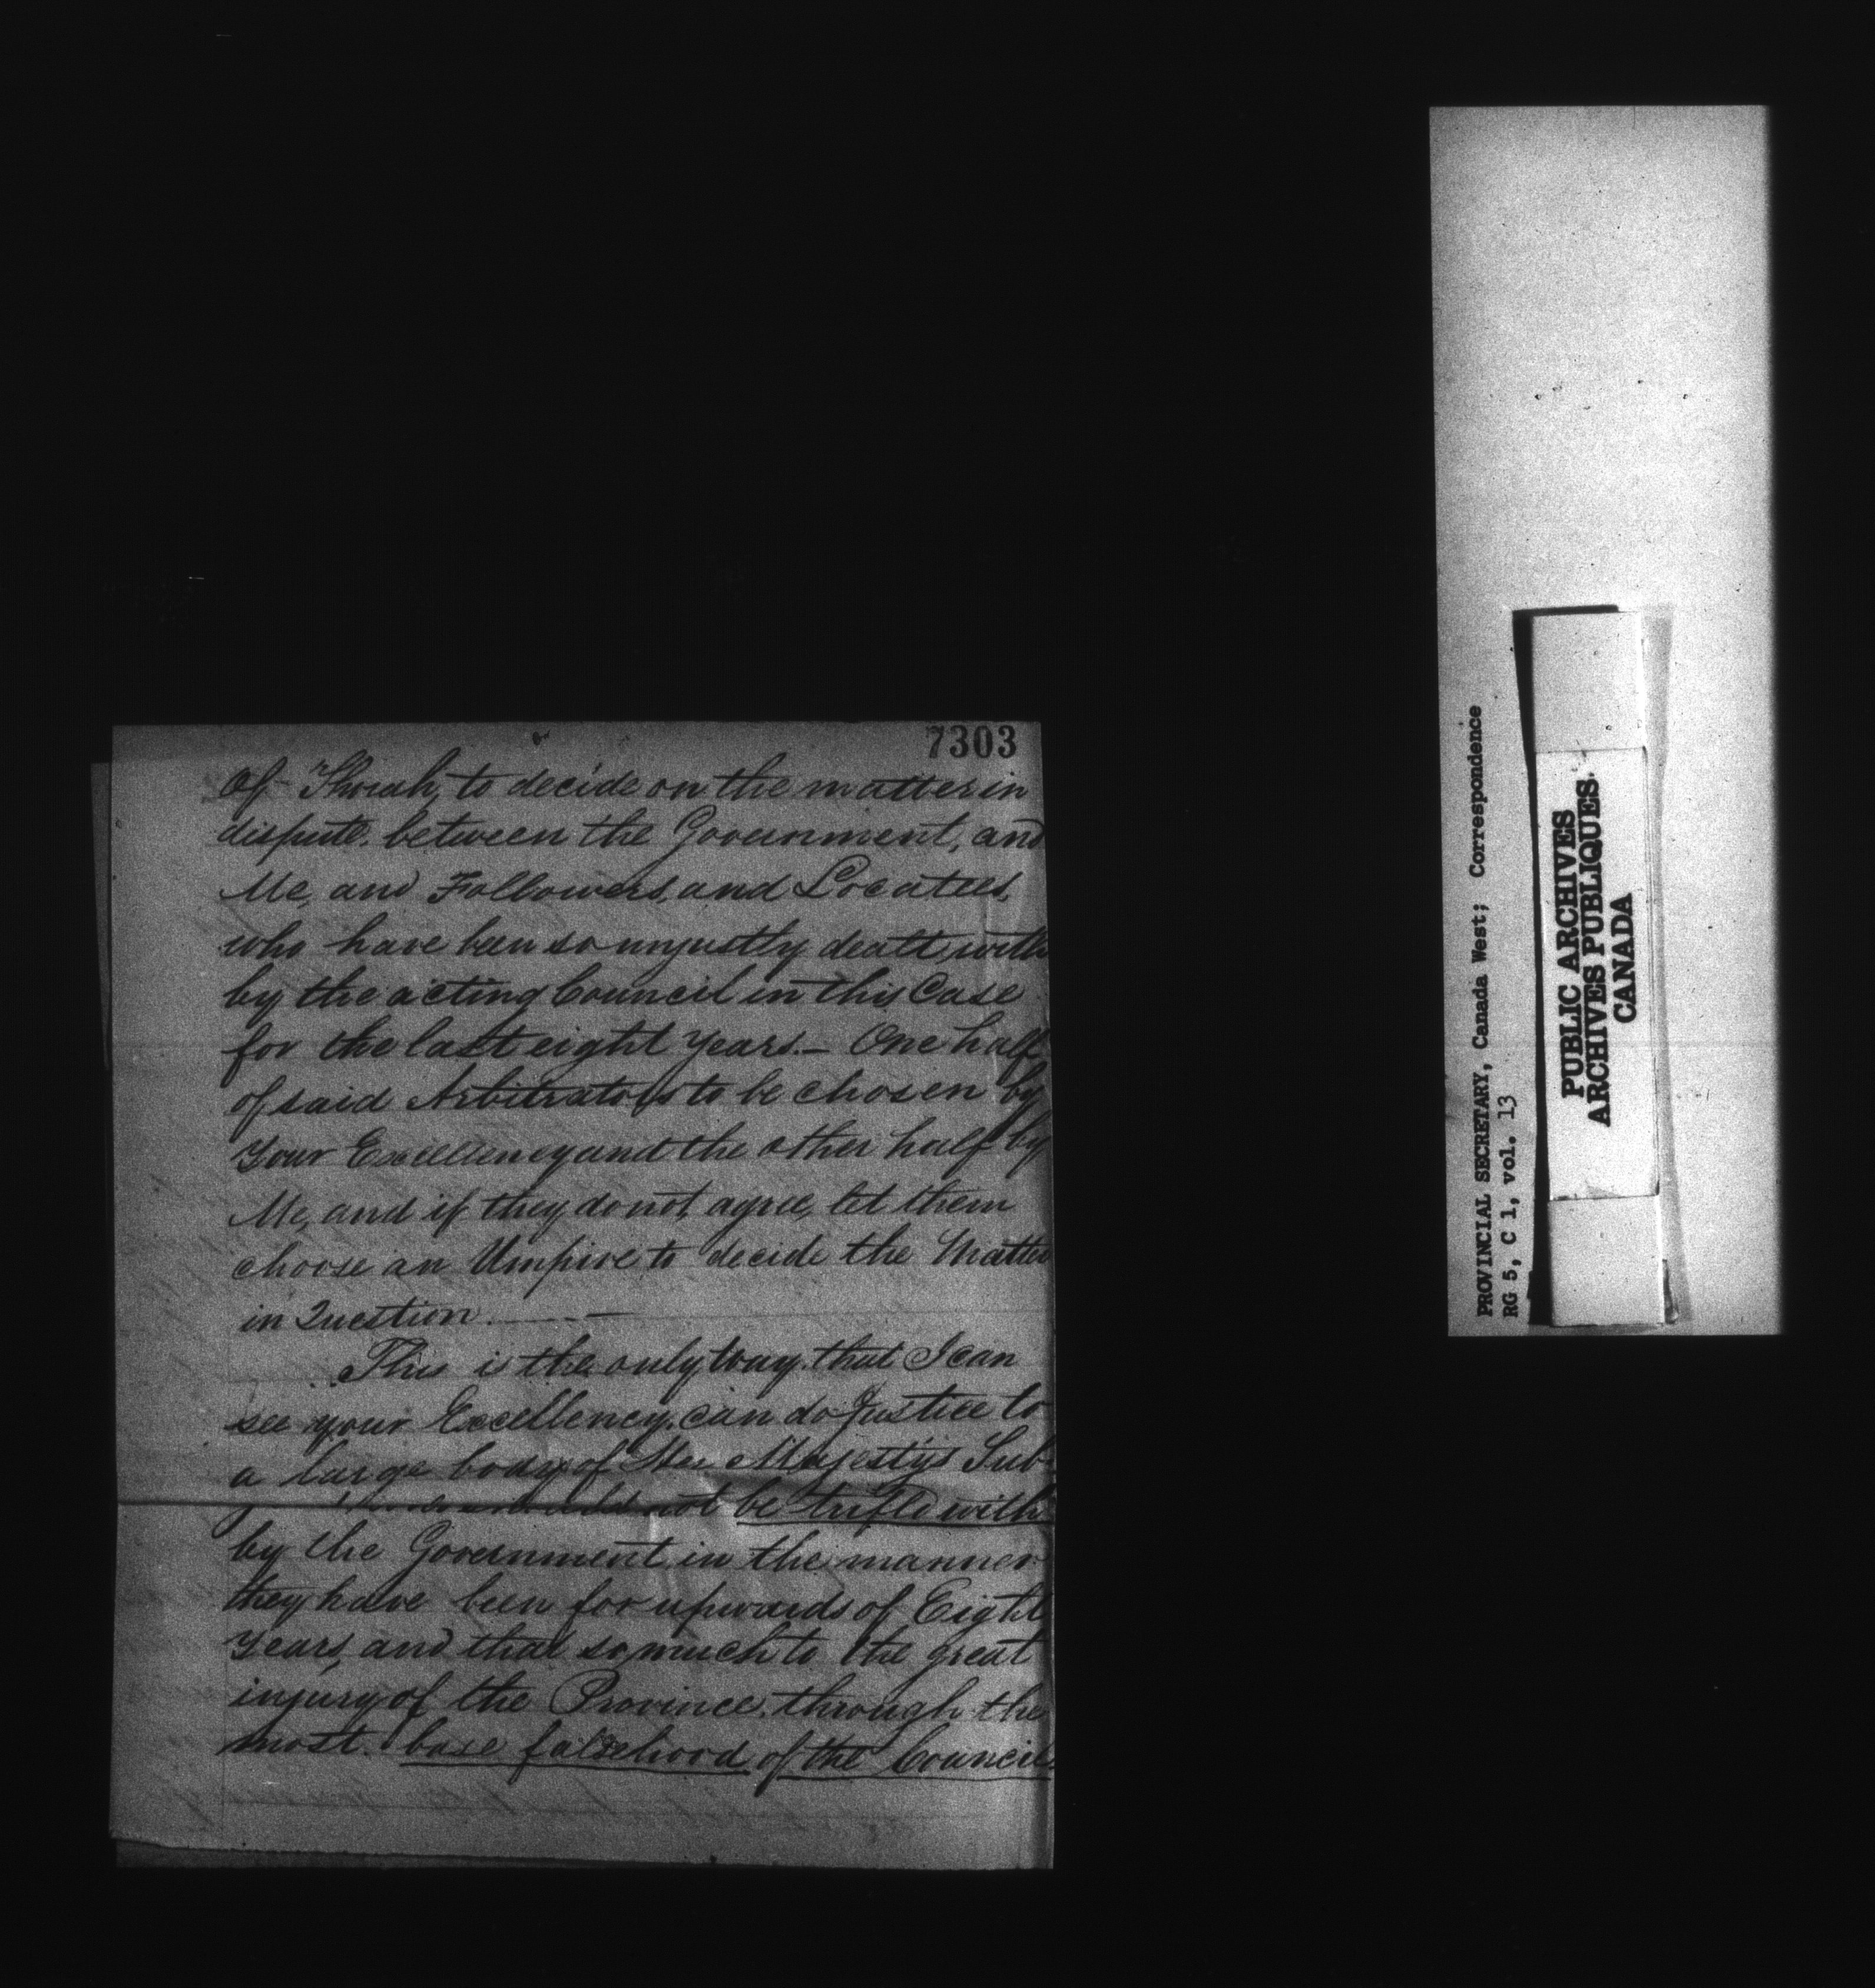 7303
Of Thorah, to decide on the matter in
dispute between the Government, and
Me, and Followers, and Locatees,
who have been so unjustly dealt, with
by the acting Council in this Case
for the last eight years. — One half
of said Arbitrators to be chosen by
Your Excellency and the other half by
Me, and if they do not, agree, let them
choose an Umpire to decide the Matter
in Question. —
This is the only way that I can
see your Excellency, can do Justice to
a large body of Her Majesty's Sub-
not be trifled with
by the Government in the manner
they have been for upwards of Eight
Years, and that so much to the great
injury of the Province, through the
most base falsehood of the Council
PROVINCIAL SECRETARY, Canada West; Correspondence
RG 5, C 1, vol. 13
PUBLIC ARCHIVES
ARCHIVES PUBLIQUES.
CANADA